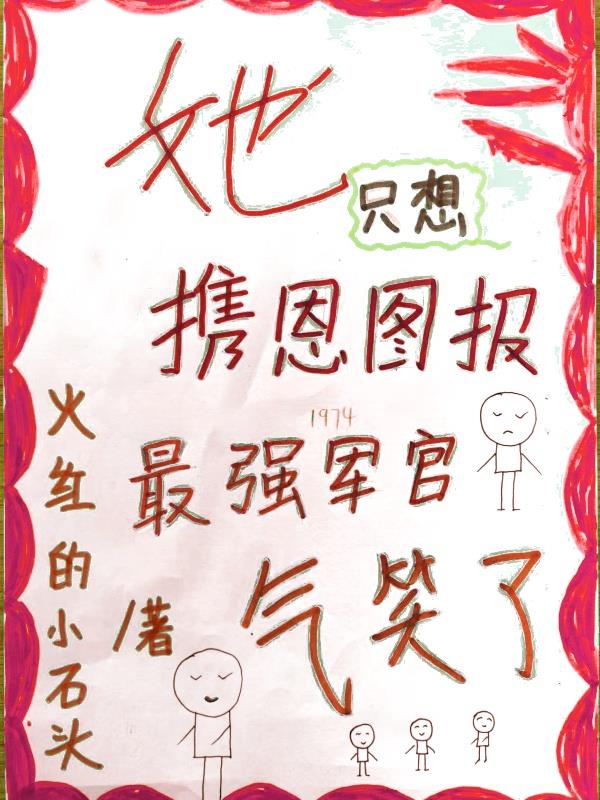 她
只想
携恩图报
1974
最强军官
气笑了
火红的小石头
/著